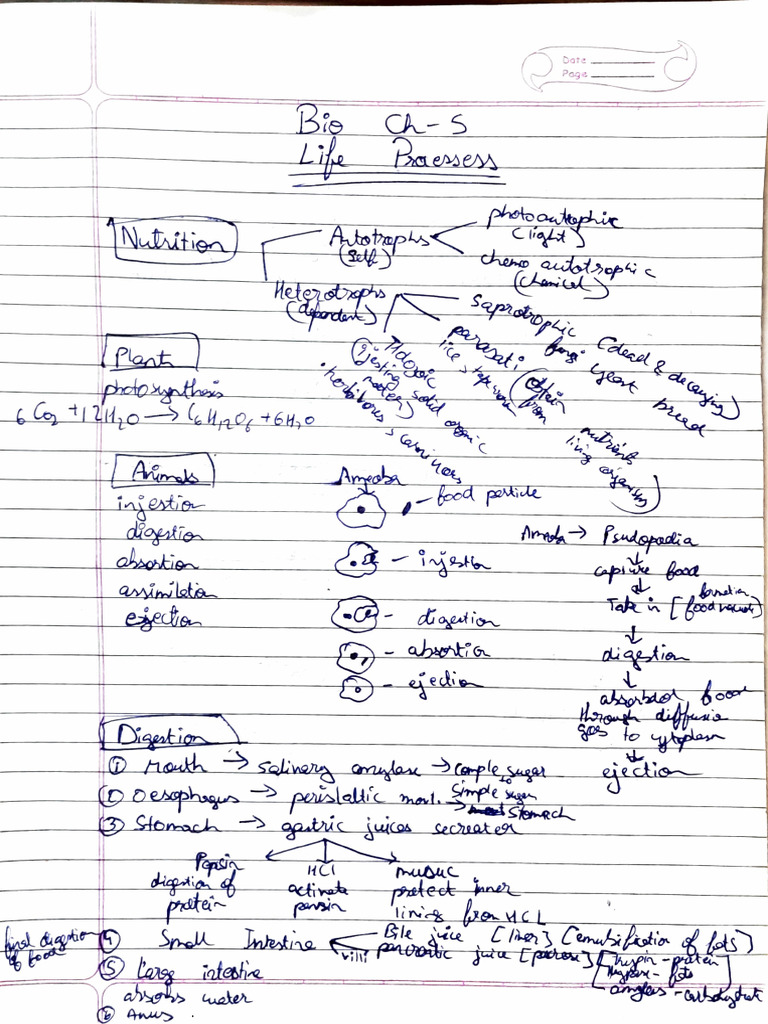 Date
Page
Bio Ch-5
Life Proessess
Nutrition
Autotrophs
(self)
photoautrophic
(light)
chemo autotrophic
(chemical)
Heterotrophs
(dependent)
Saprotrophic (dead & decaying)
fungi yeast bread
parasati (obtain nutrients
from living organism)
lice > tapeworm
Holozoic
(injesting solid organic
matter)
herbibores > carnivors
Plant
photosynthesis
6 CO2 + 12 H2O → C6H12O6 + 6H2O
Animals
injestion
digestion
absortion
assimiletion
ejection
Ameoba
food perticle
- injestion
- digestion
- absortion
- ejection
Ameoba → Psudopodia
capture food
Take in [formation food vacuole]
digestion
absorbed food
through diffusion
goes to cytoplasm
ejection
Digestion
① Mouth → salinery amylase → comple sugar to
Simple sugar
② Oesophagus → peristaltic movt. → Stomach
③ Stomach → gastric juices secreater
Pepsin
digestion of
protein
HCl
activate
pensin
mucuc
pretect inner
lining from HCL
final digestion
of food
④ Small Intestine
villi
Bile juice [liver] [emulsification of fats]
pancreatic juice [pancrease]
[trypsin - protein
lypase - fats
amylas - carbohydrate]
⑤ Large intestine
absorbs water
⑥ Anus .